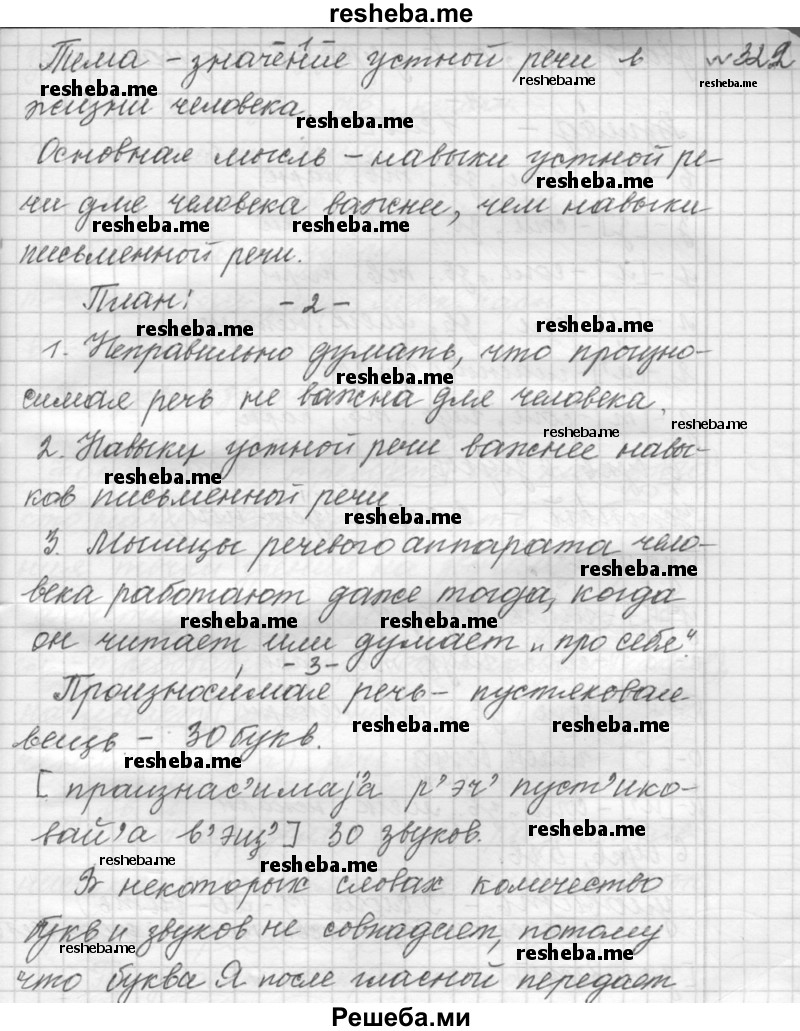 resheba.me
- 1 -
Тема – значение устной речи в №322
жизни человека.
Основная мысль – навыки устной ре-
чи для человека важнее, чем навыки
письменной речи.
План: - 2 -
1. Неправильно думать, что произно-
симая речь не важна для человека.
2. Навыки устной речи важнее навы-
ков письменной речи.
3. Мышцы речевого аппарата чело-
века работают даже тогда, когда
он читает или думает „про себя“.
- 3 -
Произносимая речь – пустяковая
вещь – 30 букв.
[праизнас’имаjа р’эч’ пуст’ико-
вай’а в’эщ’] 30 звуков.
В некоторых словах количество
букв и звуков не совпадает, потому
что буква Я после гласной передает
Решеба.ми